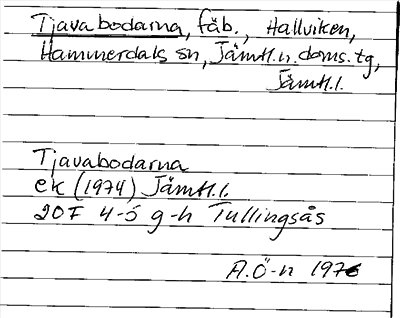 Tjavabodarna, fäb., Hallviken,
Hammerdals sn, Jämtl.n.doms.tg,
Jämtl.l.
Tjavabodarna
ek (1974) Jämtl.l.
20F 4-5 g-h Tullingsås
A.Ö-n 1976